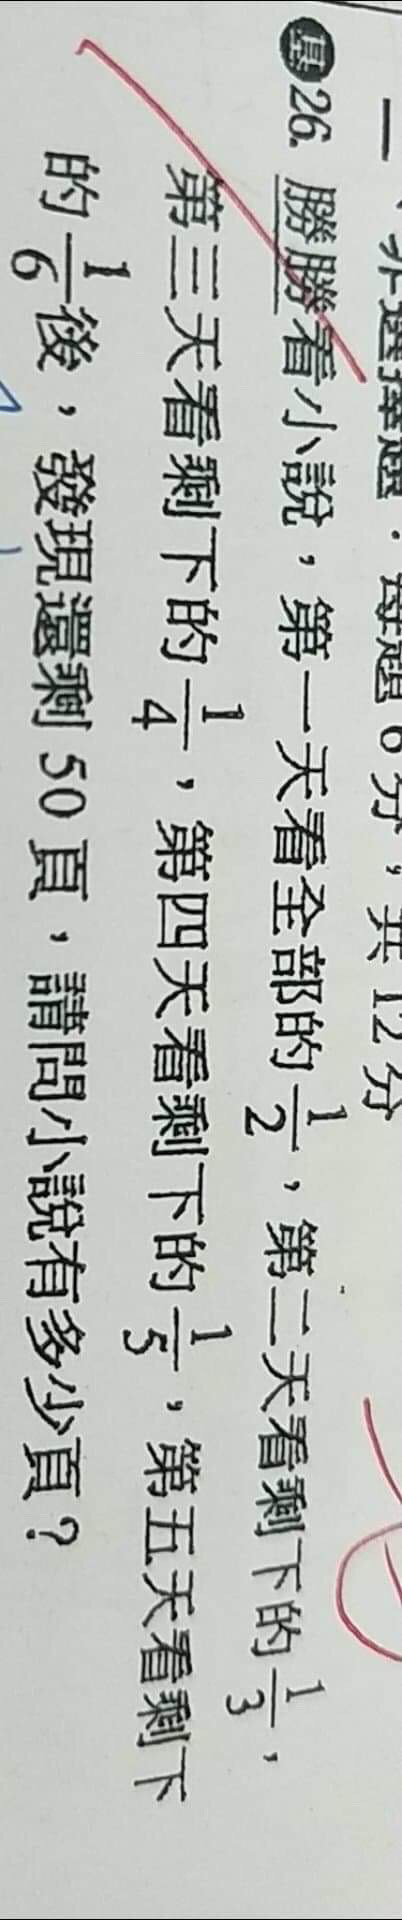 一、非選擇題：每題6分，共12分
基26. 勝勝看小說，第一天看全部的1/2，第二天看剩下的1/3，
第三天看剩下的1/4，第四天看剩下的1/5，第五天看剩下
的1/6後，發現還剩50頁，請問小說有多少頁？